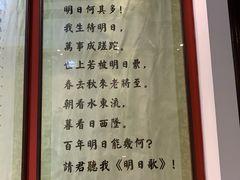 明日何其多！
我生待明日，
萬事成蹉跎。
世上若被明日累，
春去秋來老將至。
朝看水東流，
暮看日西墜。
百年明日能幾何？
請君聽我《明日歌》！